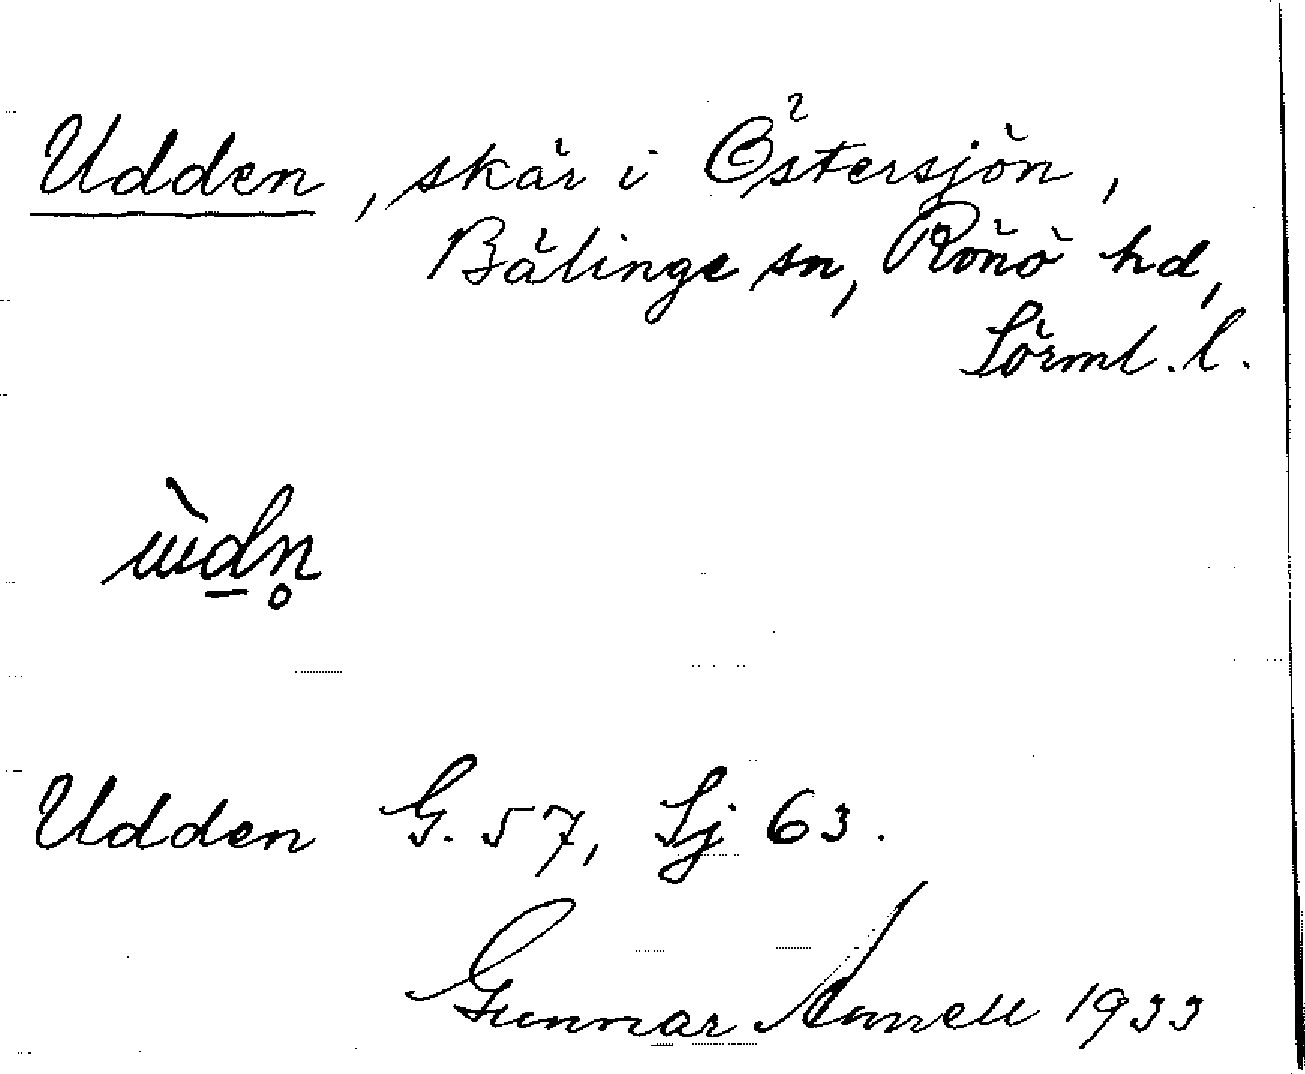 Udden, skär i Östersjön,
Bälinge sn, Rönö hd,
Sörml. l.
ùd̲n̥
Udden G. 57, Sj 63.
Gunnar Annell 1933